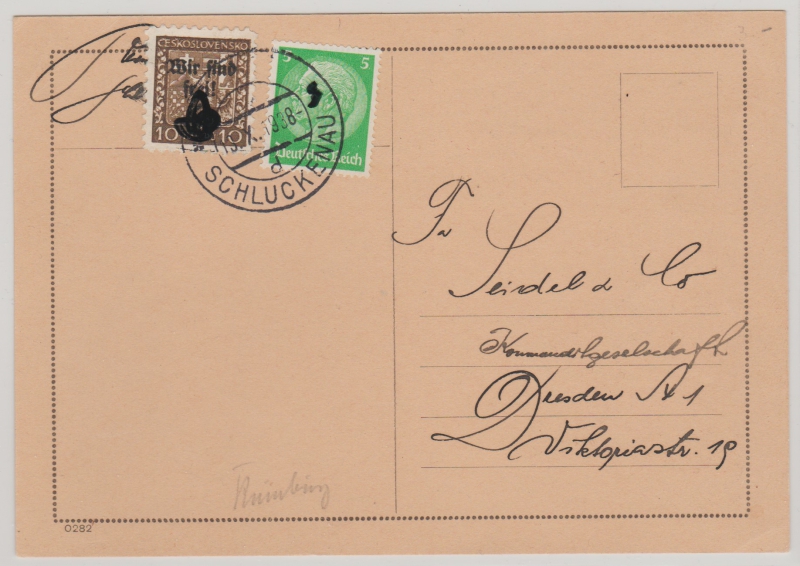 ČESKOSLOVENSKO
Wir sind
frei!
10 10
5 5
Deutsches Reich
X.1938
d
SCHLUCKENAU
Fa
Seidel & Co
Kommanditgesellschaft
Dresden A 1
Viktoriastr. 19
Rumburg
0282